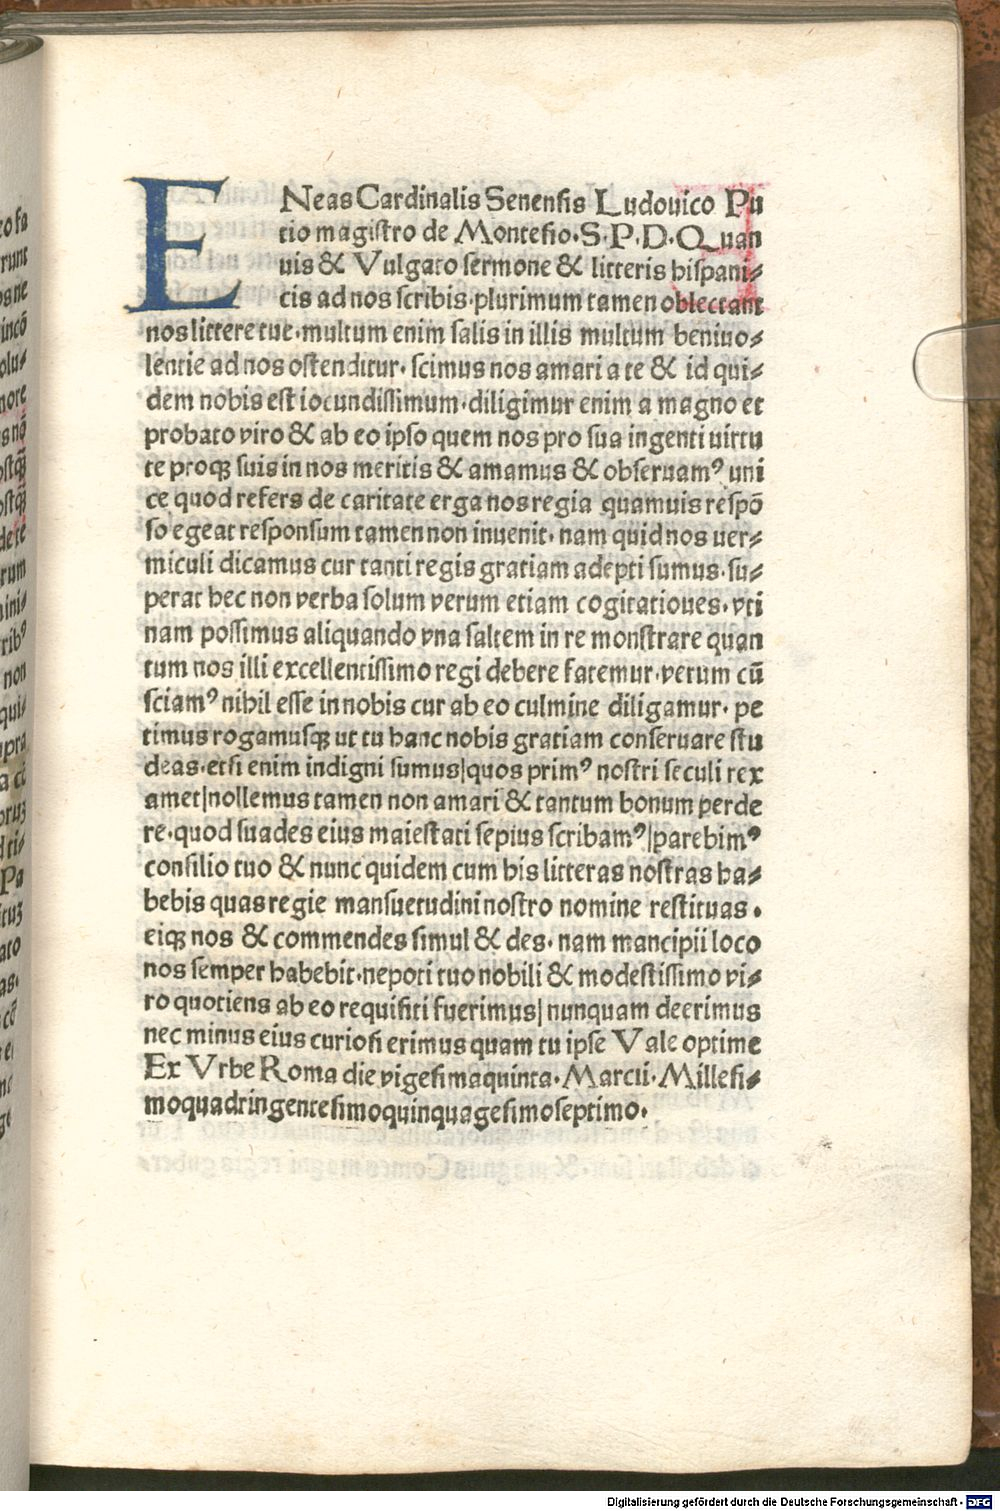 ENeas Cardinalis Senensis Ludouico Pu
tio magistro de Montesio·S·P·D·Quan
uis & Vulgato sermone & litteris hispani⸗
cis ad nos scribis·plurimum tamen oblectant
nos littere tue·multum enim salis in illis multum beniuo⸗
lentie ad nos ostenditur· scimus nos amari a te & id qui⸗
dem nobis est iocundissimum·diligimur enim a magno et
probato viro & ab eo ipso quem nos pro sua ingenti uirtu
te proqꝫ suis in nos meritis & amamus & obseruamꝰ uni
ce quod refers de caritate erga nos regia quamuis respō
so egeat responsum tamen non inuenit· nam quid nos uer⸗
miculi dicamus cur tanti regis gratiam adepti sumus·su⸗
perat hec non verba solum verum etiam cogitatioues·vti
nam possimus aliquando vna saltem in re monstrare quan
tum nos illi excellentissimo regi debere fatemur·verum cū
sciamꝰ nihil esse in nobis cur ab eo culmine diligamur· pe
timus rogamusqꝫ ut tu hanc nobis gratiam conseruare stu
deas·etsi enim indigni sumus|quos primꝰ nostri seculi rex
amet|nollemus tamen non amari & tantum bonum perde
re·quod suades eius maiestati sepius scribamꝰ|parebimꝰ
consilio tuo & nunc quidem cum his litteras nostras ha⸗
bebis quas regie mansuetudini nostro nomine restituas·
eiqꝫ nos & commendes simul & des· nam mancipii loco
nos semper habebit·nepoti tuo nobili & modestissimo vi⸗
ro quotiens ab eo requisiti fuerimus| nunquam deerimus
nec minus eius curiosi erimus quam tu ipse Vale optime
Ex Vrbe Roma die vigesimaquinta·Marcii·Millesi⸗
moquadringentesimoquinquagesimoseptimo·
Digitalisierung gefördert durch die Deutsche Forschungsgemeinschaft - DFG